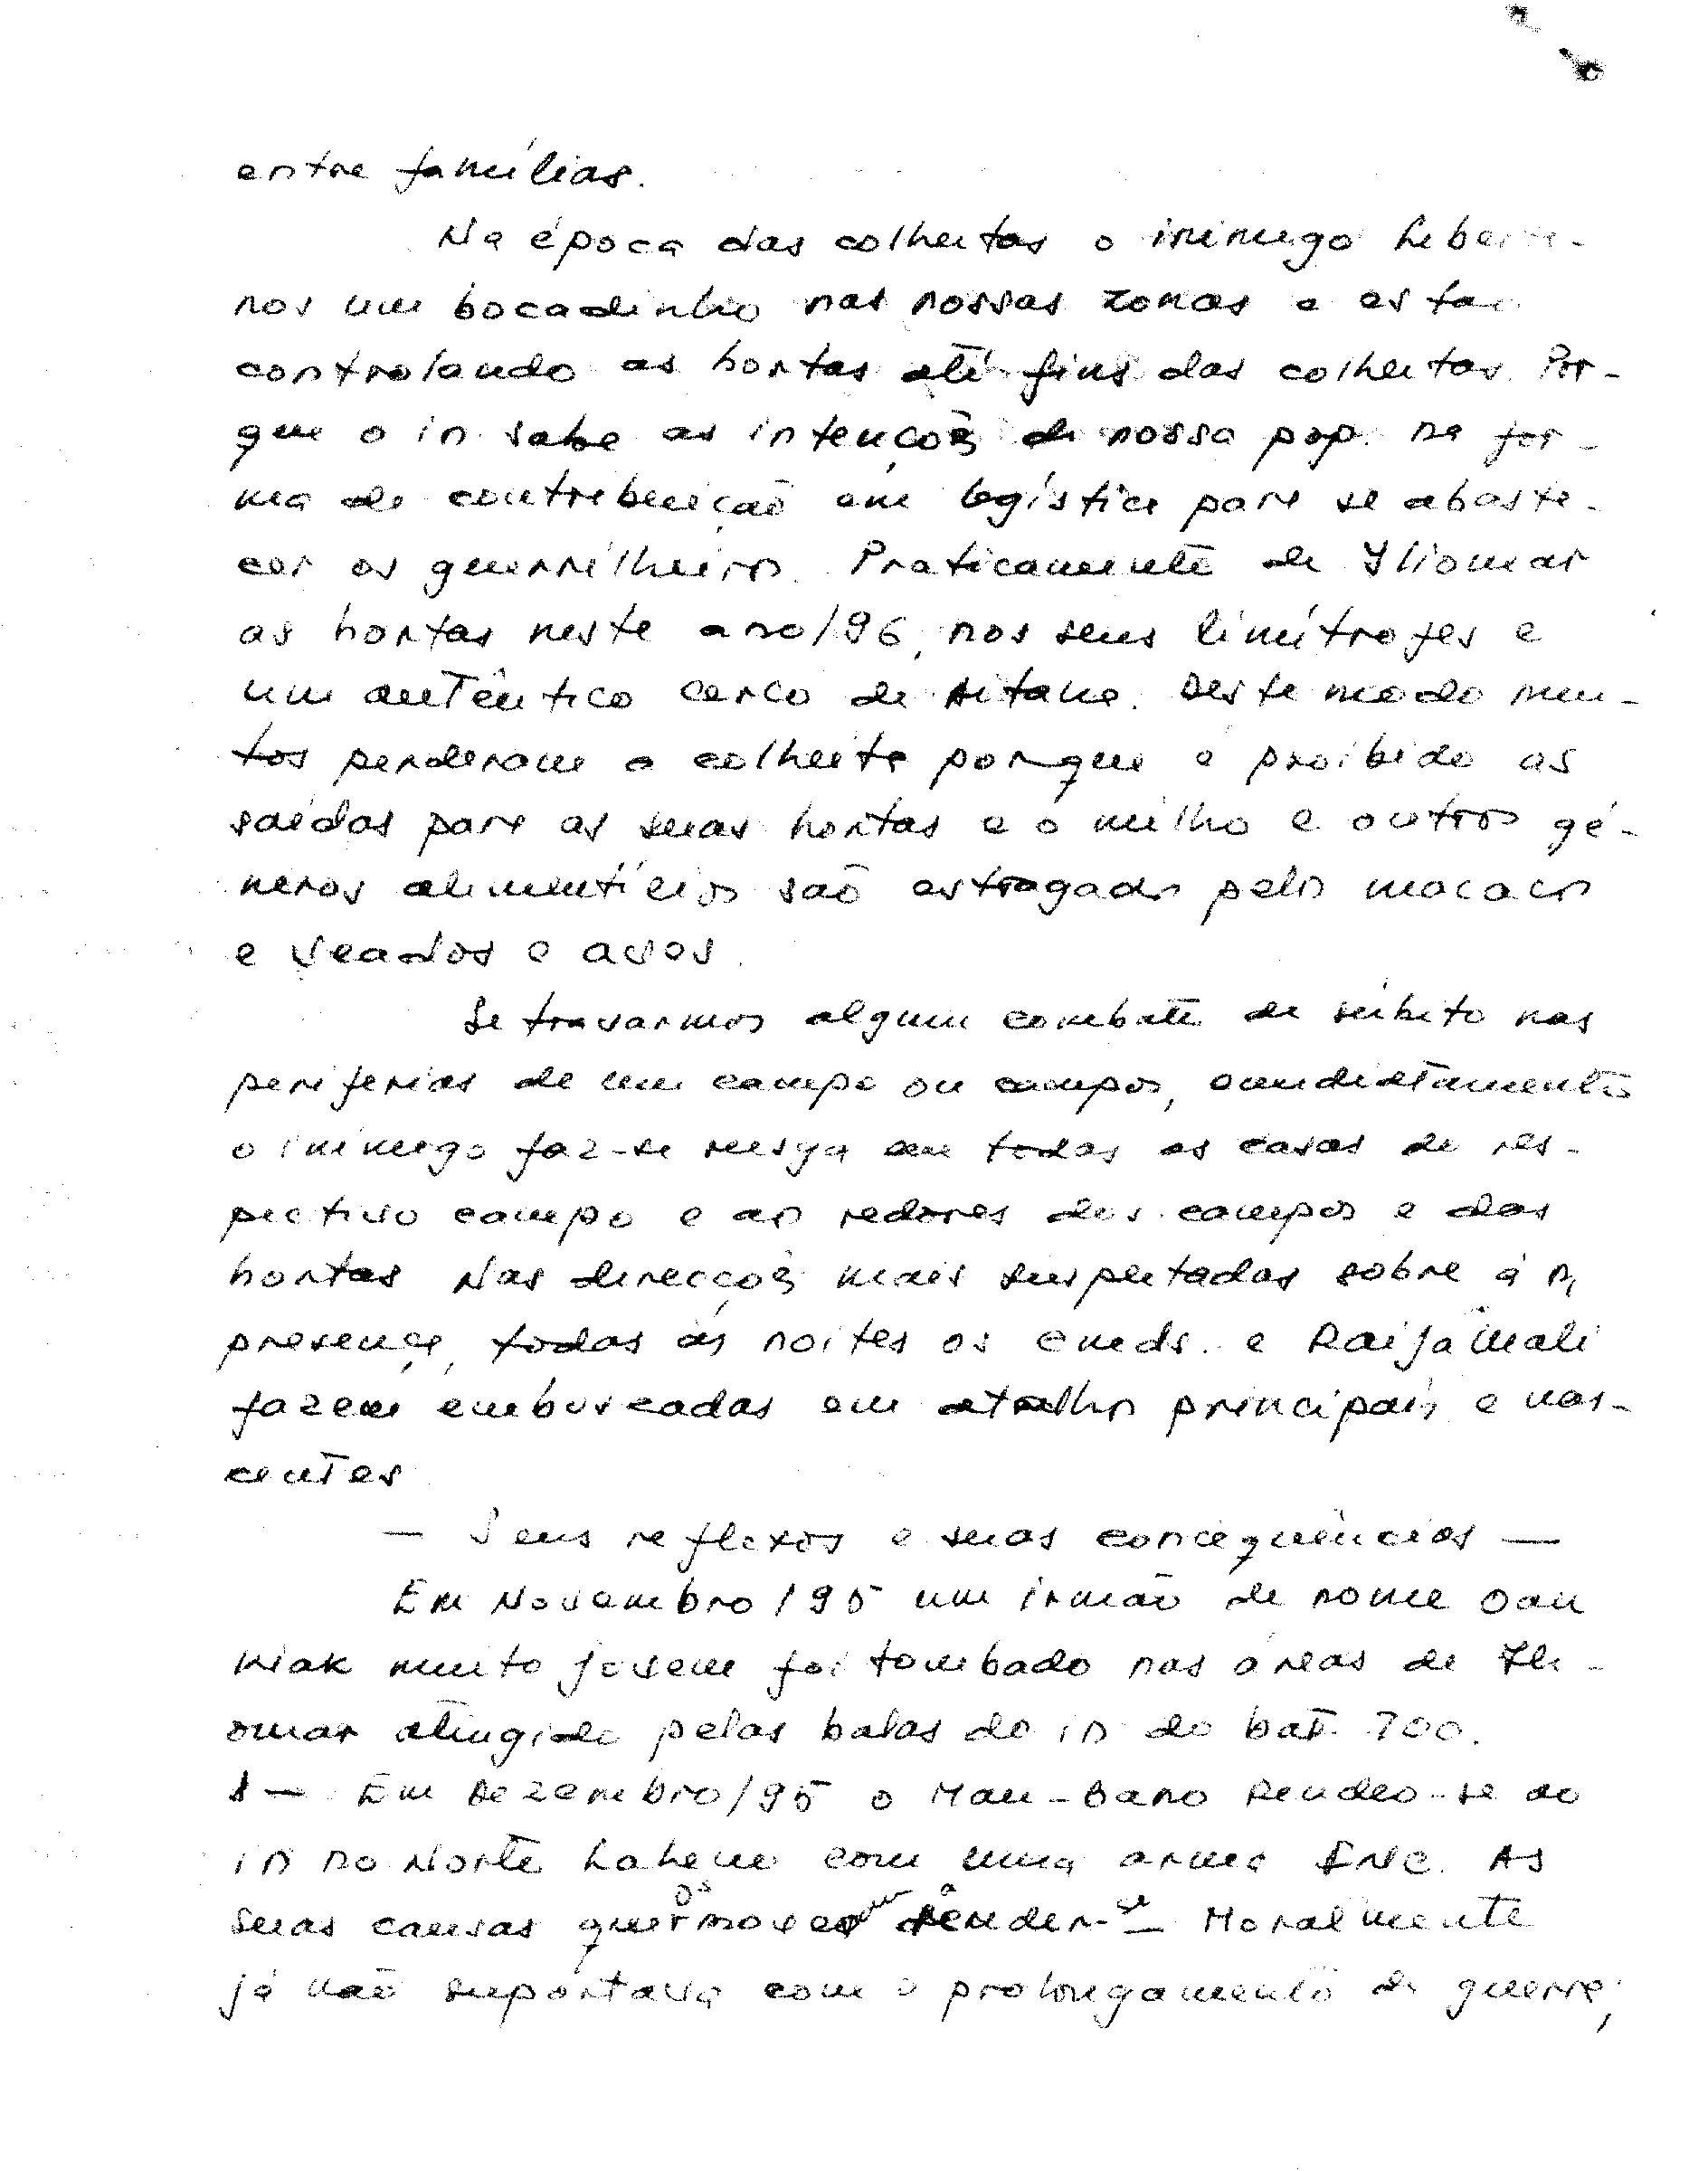 entre famílias.
Na época das colheitas o inimigo liberta-
nos um bocadinho nas nossas zonas e estão
controlando as hortas até fins das colheitas. Por-
que o in sabe as intenções de nossa pop. na for-
ma de contribuição em logística para se abaste-
cer os guerrilheiros. Praticamente de Iliomar
as hortas neste ano/96, nos seus limítrofes e
um autêntico cerco de aitane. Deste modo mui-
tos perderam a colheita porque é proibido as
saídas para as suas hortas e o milho e outros gé-
neros alimentícios são estragados pelos macacos
e veados e aves.
Se travarmos algum combate de súbito nas
periferias de um campo ou campos, emidiatamente
o inimigo faz-se rusga em todas as casas de res-
pectivo campo e ao redores dos campos e das
hortas Nas direcções mais suspeitadas sobre á n,
presença, todas as noites os cmds. e Raijâmali
fazem emboscadas em atalhos principais e nas-
centes
— Seus reflexos e suas conciquências —
Em Novembro/95 um irmão de nome Oan
Kiak muito jovem foi tombado nas áreas de Ili-
omar atingido pelas balas do in do bat. 700.
1 — Em Dezembro/95 o Mau-Bano Rendeo-se ao
in no Norte Laheno com uma arma FNC. As
suas causas que os moveram a render-se — Moralmente
já não suportava com o prolongamento de guerra;